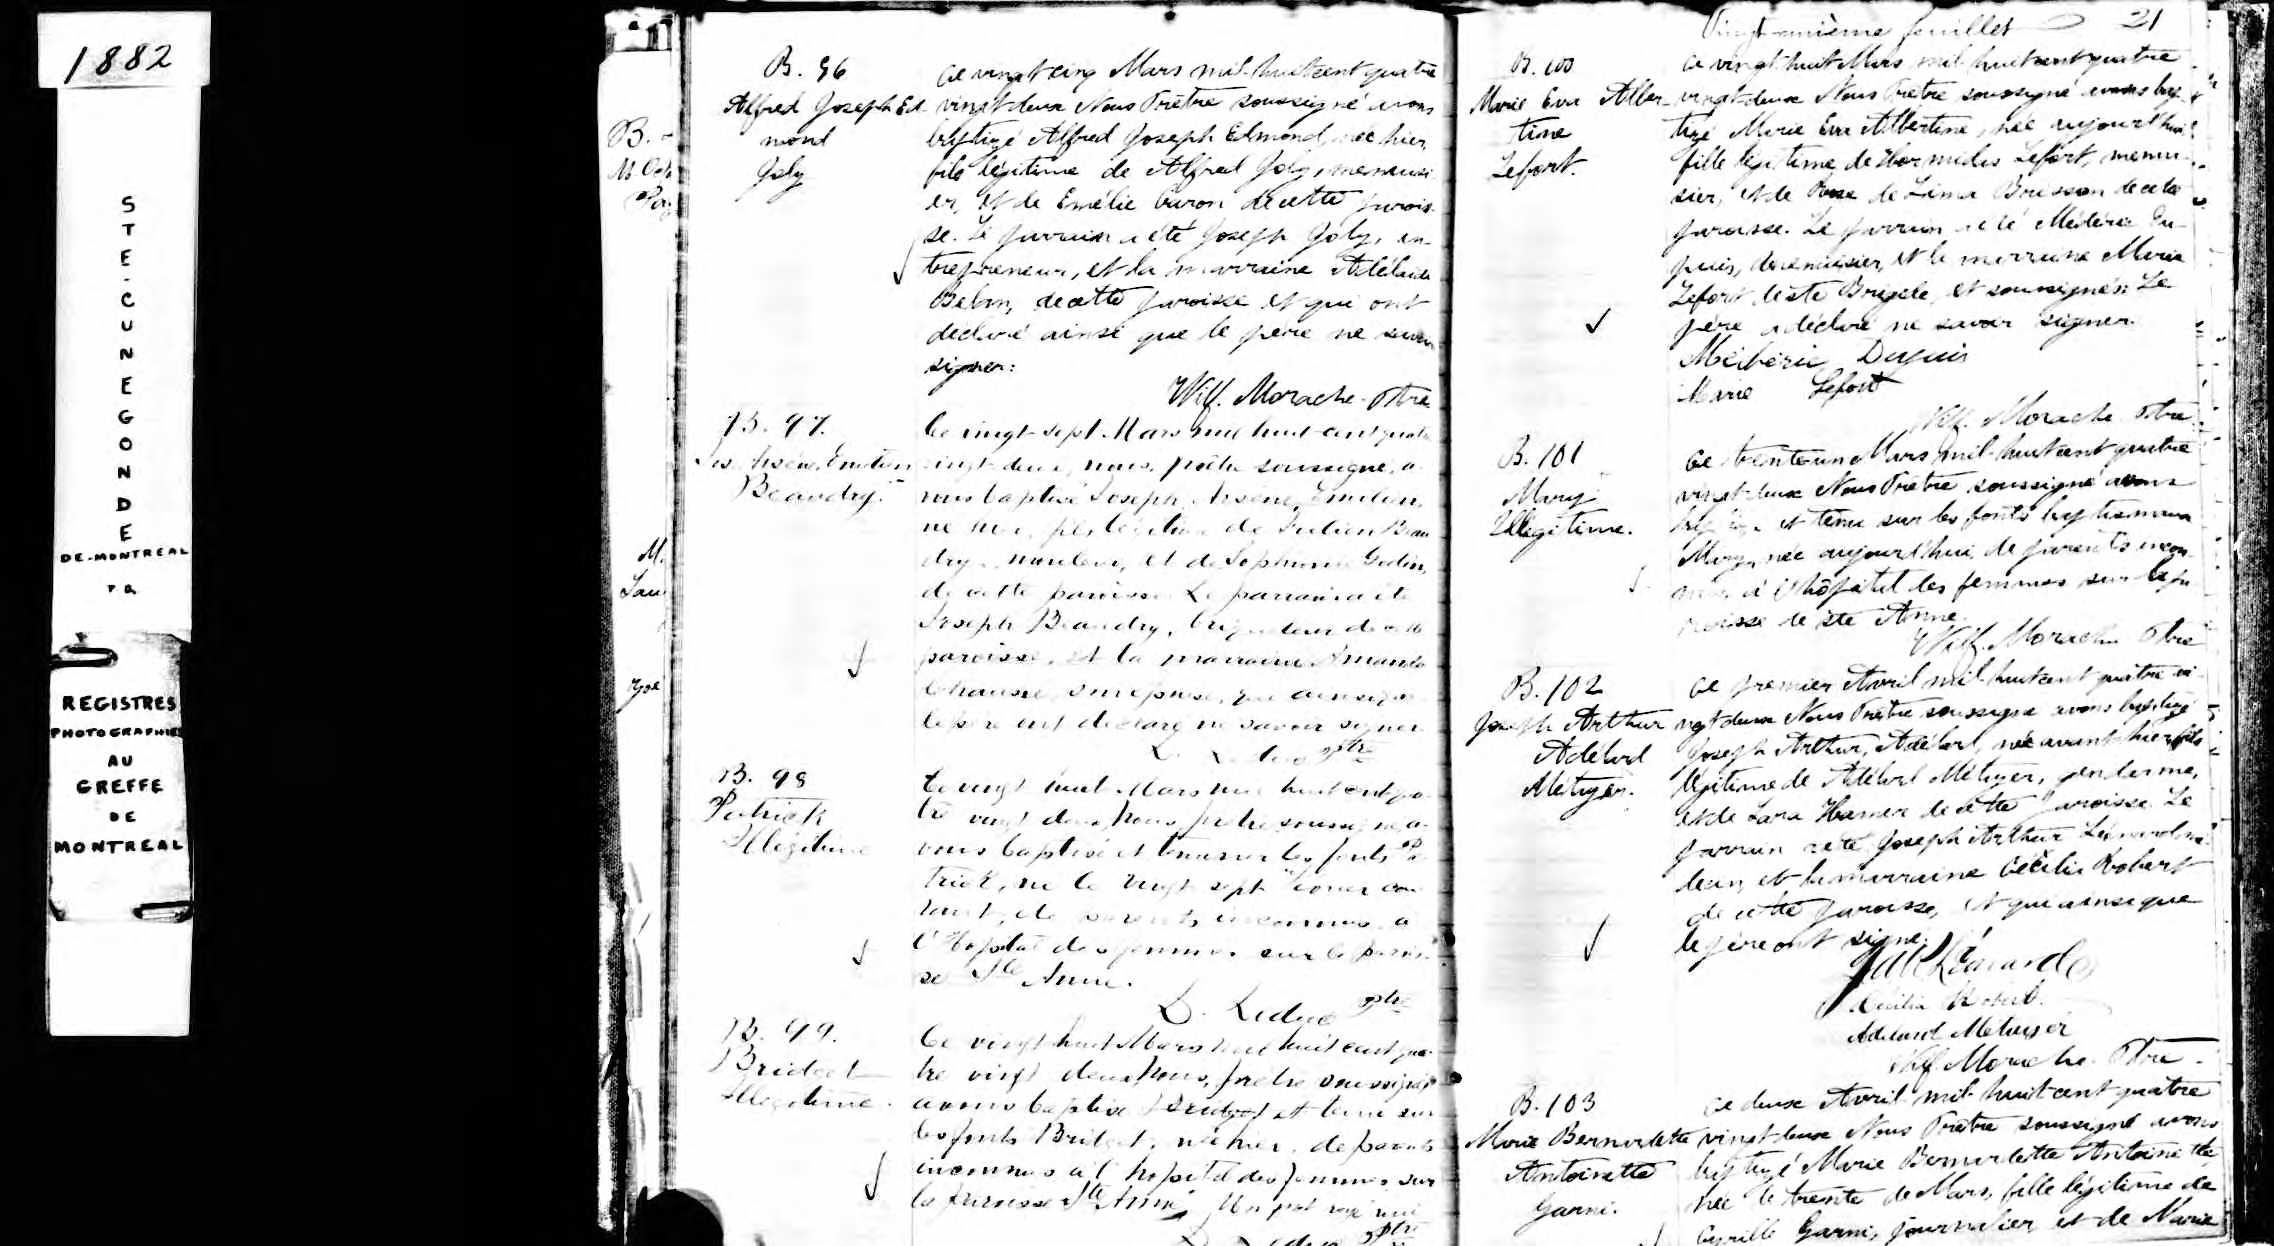 1882
STE-CUNEGONDE
DE-MONTREAL
P Q
REGISTRES
PHOTOGRAPHIES
AU
GREFFE
DE
MONTREAL
B. 96
Alfred Joseph Ed
mond
Joly
Ce vingt cinq Mars mil huit cent quatre
vingt deux Nous Prêtre soussigné avons
baptisé Alfred Joseph Edmond, née hier,
fils légitime de Alfred Joly, menuisi
er, et de Emélie Caron de cette parois
se. Le parrain a été Joseph Joly, en
trepreneur, et la marraine Adélaide
de cette paroisse et qui ont
declaré ainsi que le père ne savoir
signer:
Wilf. Morache Ptre
B. 97.
Jos. Arsène Emilien
Beaudry.
Ce vingt-sept Mars mil huit-cent quatre
vingt-deux, nous, prêtre soussigné, a
vons baptisé Joseph Arsène Emilien,
né hier, fils légitime de Julien Beau
dry, mouleur, et de Sophronie Godin,
de cette paroisse. Le parrain a été
Joseph Beaudry, briqueteur de cette
paroisse, et la marraine Amanda
son épouse, qui ainsi que
le père ont déclaré ne savoir signer
L. Leduc ptre
B. 98
Patrick
Illégitime
Ce vingt huit Mars mil huit cent qua
tre vingt deux, Nous, prêtre soussigné, a
vons baptisé et tenu sur les fonts Pa
trick, né le vingt sept février cou
rant, de parents inconnus, à
l'Hopital des femmes sur la parois
se Ste Anne.
L. Leduc ptre
B. 99.
Bridget
Illégitime.
Ce vingt huit Mars mil huit cent qua
tre vingt deux Nous, prêtre soussigné
avons baptisé Bridget et tenu sur
les fonts Bridget, née hier, de parents
inconnus à l'hopital des femmes sur
la paroisse Ste Anne. Un mot rayé nul
L. Leduc ptre
Vingt-unième feuillet 21
B. 100
Marie Eva Alber
tine
Lefort.
Ce vingt-huit Mars mil-huit cent quatre
vingt-deux Nous Prêtre soussigné avons bap
tisé Marie Eva Albertine, née aujourd'hui
fille légitime de Hormidas Lefort, menui
sier, et de Rose de Lima Brisson de cette
paroisse. Le parrain a été Médéric Du
puis, menuisier, et la marraine Marie
Lefort de Ste Brigide, et soussignés. Le
père a déclaré ne savoir signer.
Médéric Dupuis
Marie Lefort
Wilf. Morache Ptre
B. 101
Mary
Illégitime.
Ce trente un Mars mil-huit cent quatre
vingt-deux Nous Prêtre soussigné avons
baptisé et tenu sur les fonts baptismaux
Mary, née aujourd'hui, de parents incon
nus à l'hôpital des femmes sur la pa
roisse de Ste Anne.
Wilf. Morache Ptre
B. 102
Joseph Arthur
Adélard
Métiyer.
Ce premier Avril mil-huit cent quatre vi
ngt deux Nous Prêtre soussigné avons baptisé
Joseph Arthur, Adélard, née avant-hier, fils
légitime de Adélard Métiyer, gendarme,
et de Lara Hamer de cette paroisse. Le
parrain a été Joseph Arthur Léonard
et la marraine Cécilia Robert
de cette paroisse, et qui ainsi que
le père ont signé.
J. A. Léonard
Cécilia Robert.
Adélard Metuyer
Wilf. Morache Ptre
B. 103
Marie Bernadette
Antoinette
Garni.
Ce deux Avril mil-huit cent quatre
vingt-deux Nous Prêtre soussigné avons
baptisé Marie Bernadette Antoinette,
née le trente de Mars, fille légitime de
Cyrille Garni, journalier, et de Marie